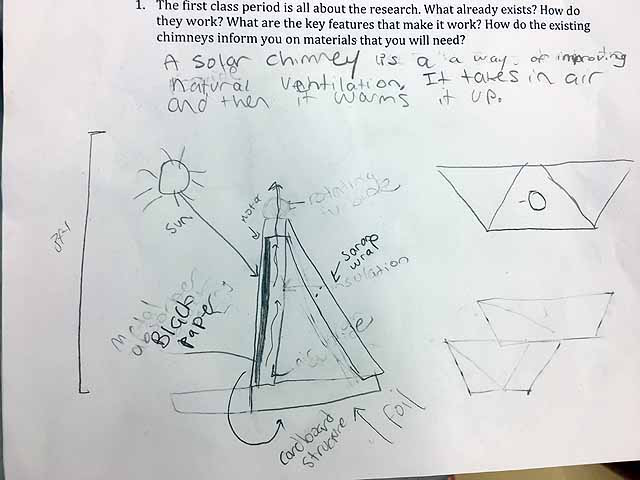 1. The first class period is all about the research. What already exists? How do
they work? What are the key features that make it work? How do the existing
chimneys inform you on materials that you will need?
A solar chimney is a a way of improving
natural ventilation. It takes in air
and then it warms it up.
sun
rotating
saran
wrap
insulation
Metal
absorber
Black
paper
cardboard
structure
Foil